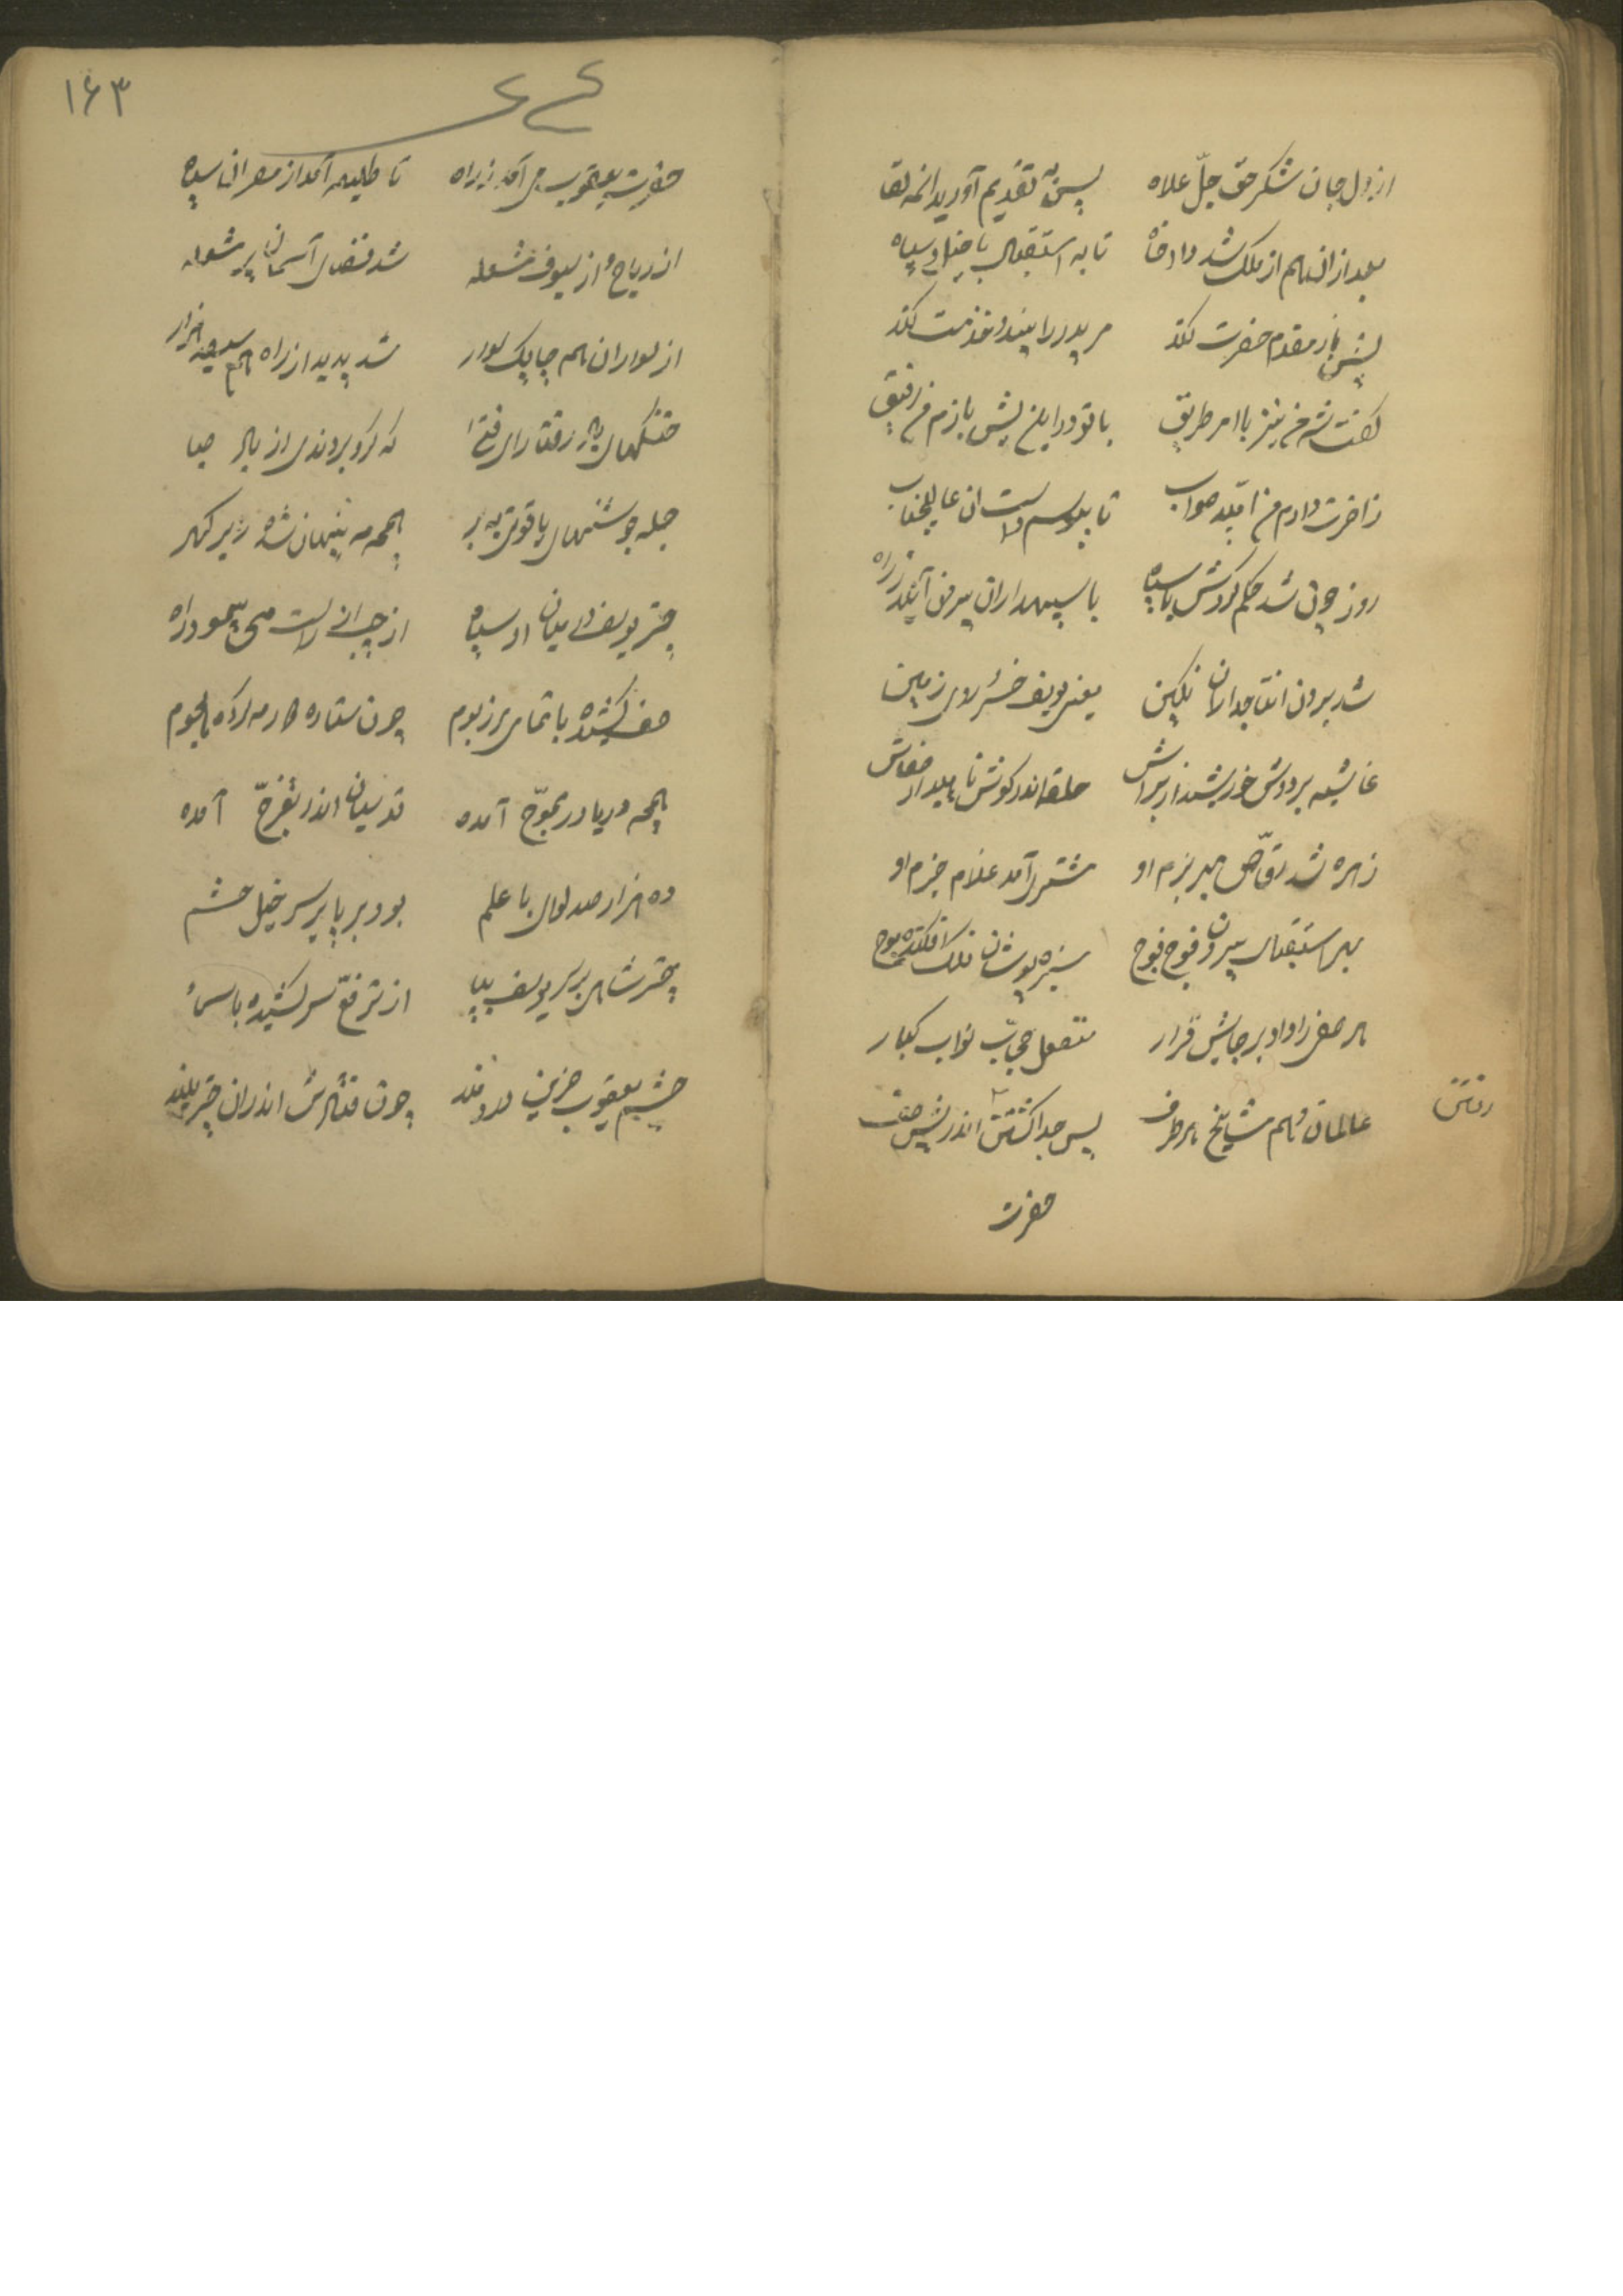 از دل و جان شکر حق جلّ علاه پس به تقدیم آورید آنمه لقا
بعد از ان هم از ملک شد دادخواه تا به استقبال با خیل و سپاه
پیش باز مقدم حضرت کند مر پدر را بیند و خدمت کند
گفت شه من نیز با امر طریق با تو در این پیش بازم من رفیق
ز اخرت دارم من امید صواب تا ببوسم دست ان عالیجناب
روز چون شد حکم کردش با سپاه با سپهداران بیرون آید ز راه
شد برون انتاجدار نگین یعنی یوسف خسرو روی زمین
غاشیه بر دوش خورشید از براش حلقه اندر گوش ناهید از
زهره شد رقّاص بهر بزم او مشتری آمد غلام حزم او
بهر استقبال بیرون فوج فوج سبزه پوشان فلک افکنده موج
هر صفی را داد بر جایش قرار متصل حجّاب نواب کبار
عالمان و هم مشایخ هر طرف پس جدا گشتش اندر پیش صف
حضرت
۱۶۳
حضرت یعقوب می آمد ز راه تا طلیعه آمد از مصر ان سپاه
از ریاح و از سیوف مشعله شد فضای آسمان پر شعله
از سواران هم چابک سوار شد پدید از راه هم سیصد هزار
خنگهای باد رفتار ای فتا که گرو بردندی از باد صبا
جمله جوشنهای یاقوتی به بر همچو مه پنهان شده زیر گهر
چتر یوسف در میان ان سپاه از چپ از راست می پیمود راه
صف کشیده با تمامی مرز بوم چون ستاره کاه مه کرده هجوم
همچو دریا در تموّج آمده قدسیان اندر تفرّج آمده
ده هزار صد لوای با علم بود بر پا بر سر خیل حشم
چتر شاهی بر سر یوسف بپا از ترفّع سر کشیده با سما
چشم یعقوب حزین دردمند چون فتادش اندران چتر بلند